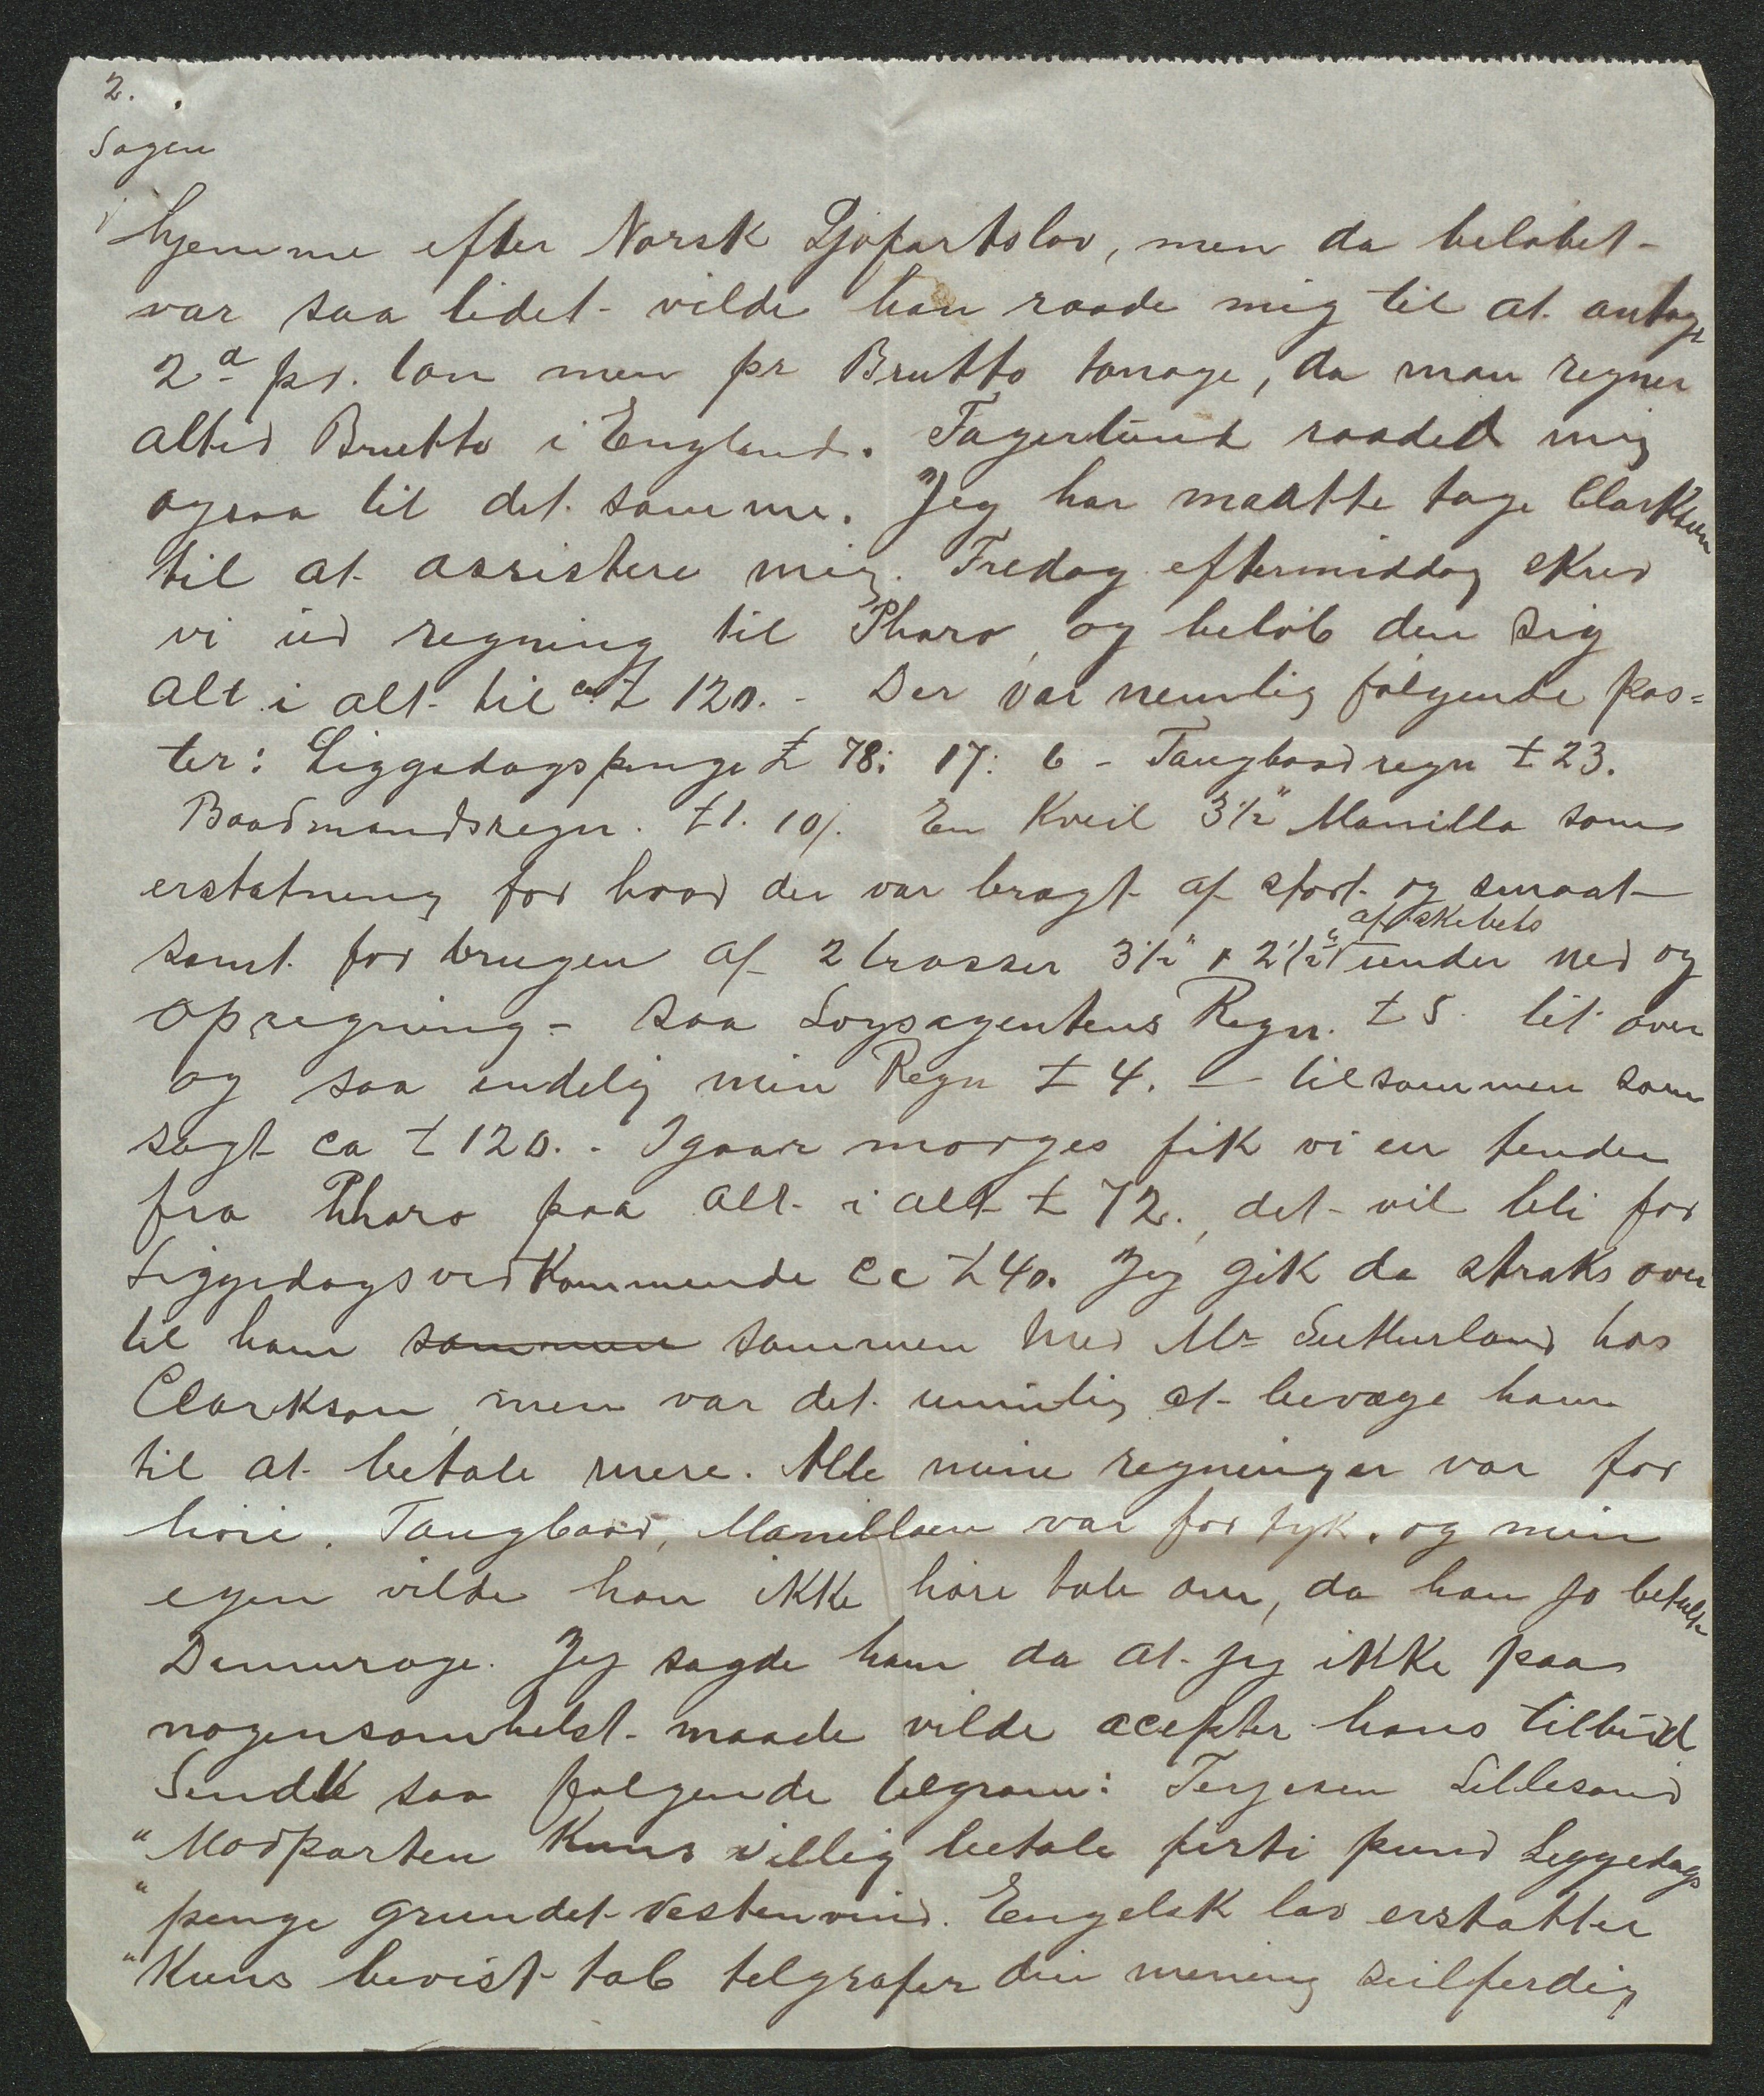 2.
Sagen
hjemme efter Norsk Sjøfartslov, men da beløbet
var saa lidet vilde han raade mig til at antage
2d pr. ton men pr Brutto tonage, da man regner
altid Brutto i England. Fagerlund raaded mig
ogsaa til det samme. Jeg har maatte tage Clarkson
til at assistere mig. Fredag eftermiddag skrev
vi ud regning til Pharo, og beløb den sig
alt i alt til ca £ 120. - Der var nemlig følgende pos=
ter: Liggedagspenge £ 78: 17: 6 - Taugbaadregn £ 23.
Baadmandsregn. £ 1. 10/. En Kveil 3½" Manilla som
erstatning for hvad der var bragt af stort og smaat
samt for brugen af 2 trosser 3½" & 2½" af skibets under ned og
oprigning - saa Loysagentens Regn. £ 5. lit over
og saa endelig min Regn £ 4. — tilsammen som
sagt ca £ 120. - Igaar morges fik vi en tender
fra Pharo paa alt i alt £ 72., det vil bli for
Liggedagsvedkommende ca £ 40. Jeg gik da straks over
til ham sammen sammen med Mr Sutherland hos
Clarkson, men var det umulig at bevæge ham
til at betale mere. Alle mine regninger var for
høie. Taugbaad, Manillaen var for tyk. og min
egen vilde han ikke høre tale om, da han jo betalte
Demurage. Jeg sagde ham da at jeg ikke paa
nogensomhelst maade vilde acepter hans tilbud
Sendte saa følgende telgram: Terjesen Lillesand
"Modparten Kuns villig betale firti pund Liggedags
"penge grundet vestenvind. Engelsk lov erstatter
"Kuns bevist tab telgrafer din mening seilferdig